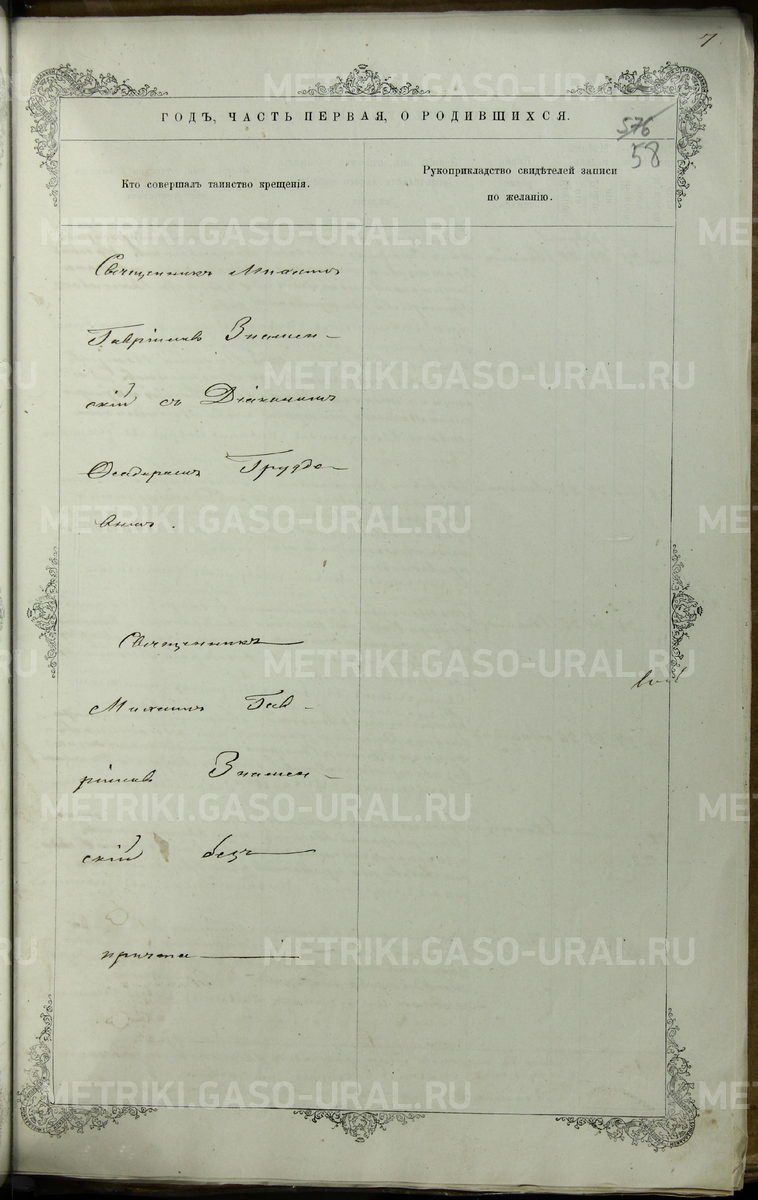 7
ГОДЪ, ЧАСТЬ ПЕРВАЯ, О РОДИВШИХСЯ.
576
58
Кто совершалъ таинство крещенія.
Рукоприкладство свидѣтелей записи
по желанію.
Священникъ Михаилъ
Гавріиловъ Знамен-
скій съ Діакономъ
Ѳеодоромъ Груздо-
вымъ.
Священникъ
Михаилъ Гав-
ріиловъ Знамен-
скій безъ
причта
METRIKI.GASO-URAL.RU